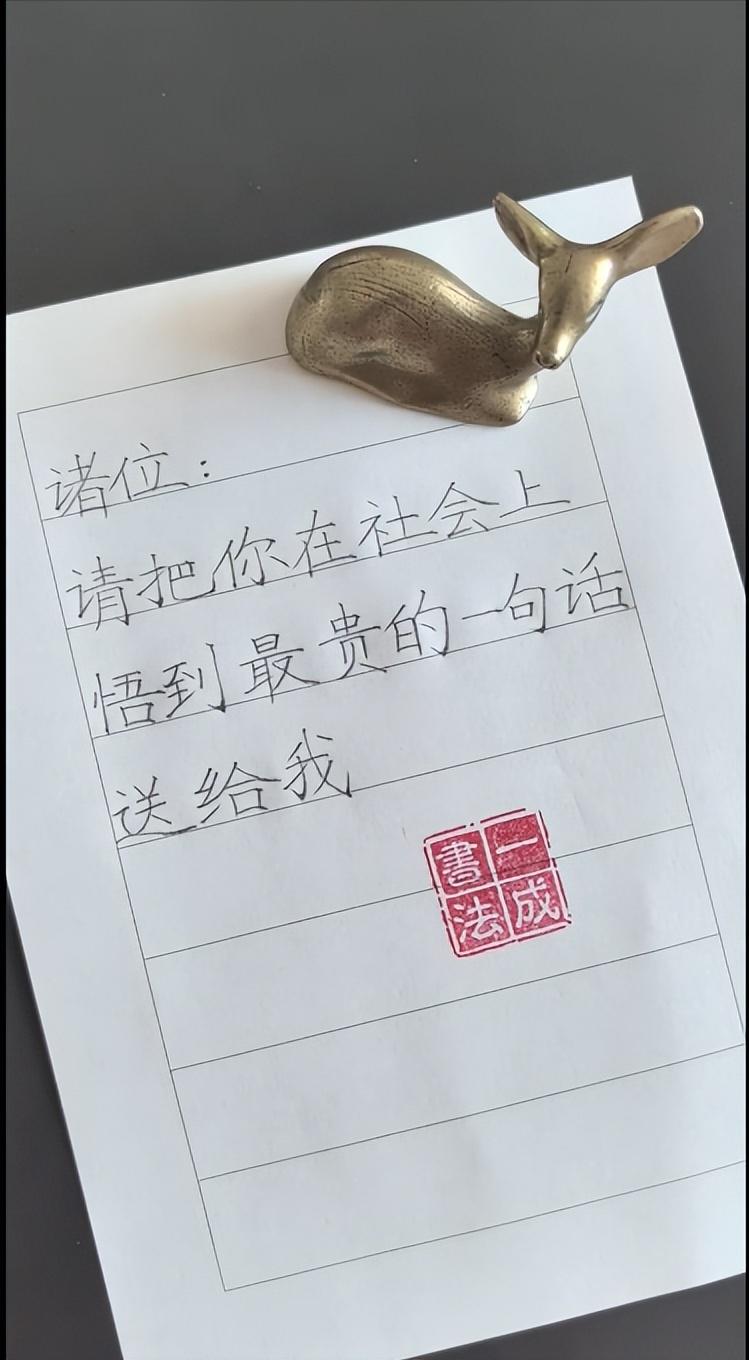 诸位：
请把你在社会上
悟到最贵的一句话
送给我
一成書法